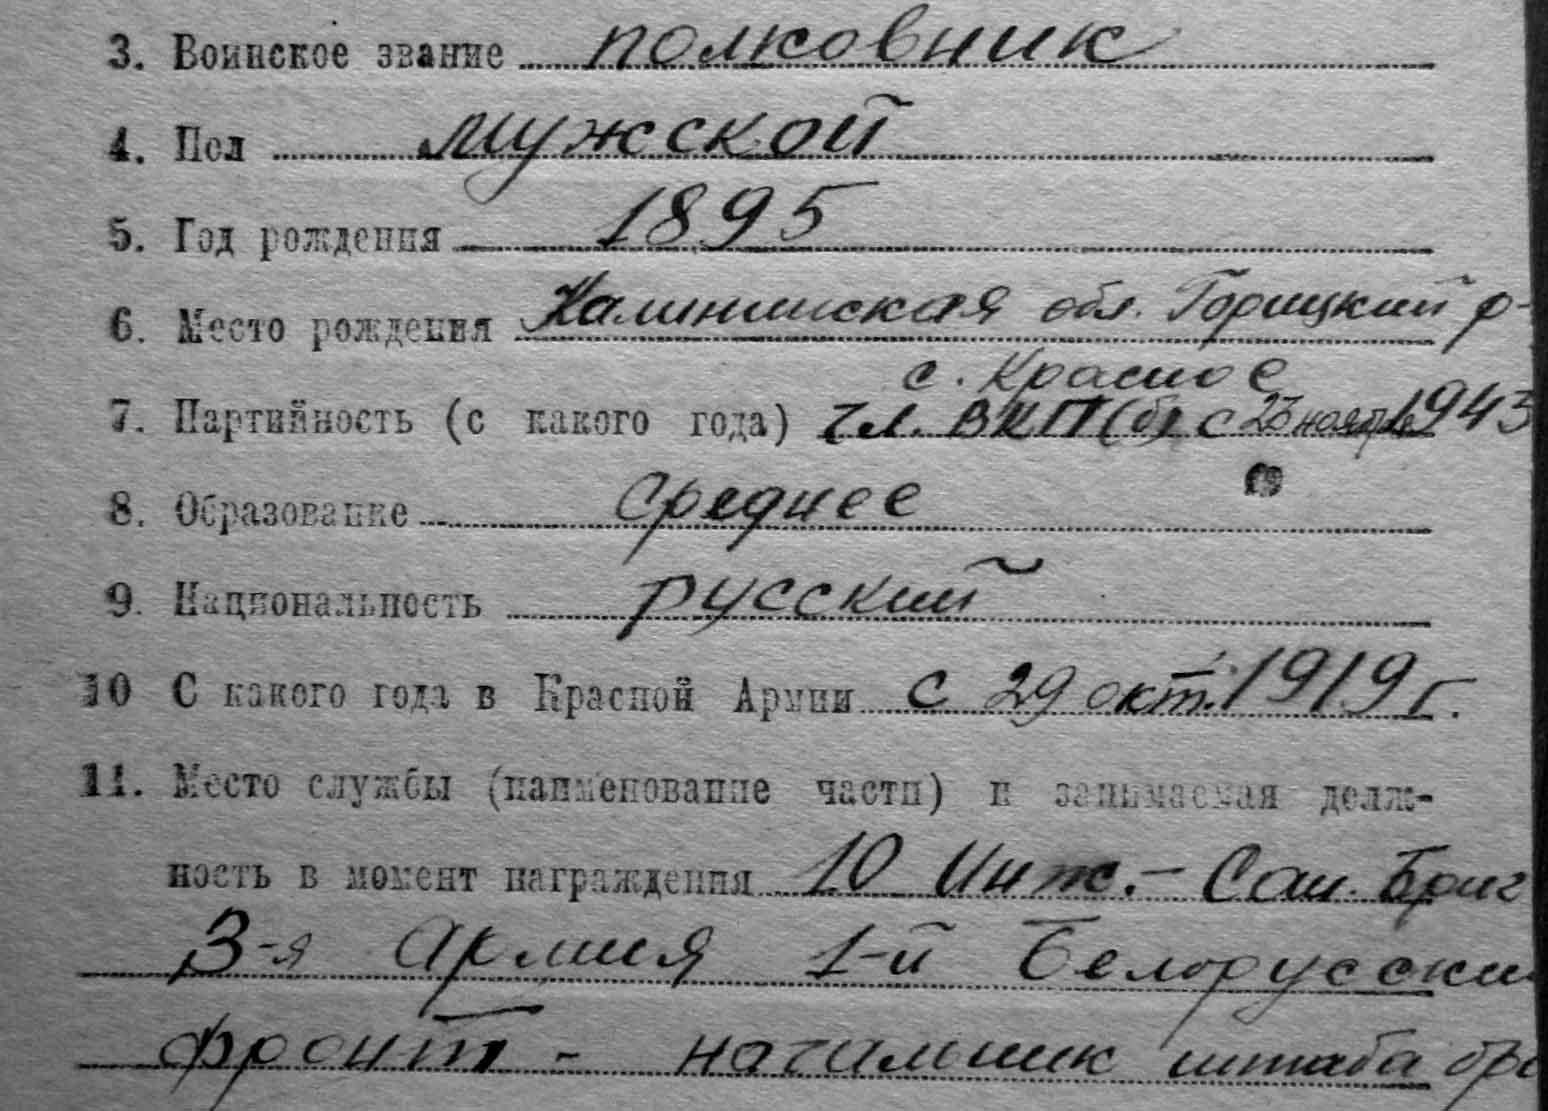 3. Воинское звание полковник
4. Пол мужской
5. Год рождения 1895
6. Место рождения Калининская обл. Горицкий р-
с. Красное
7. Партийность (с какого года) чл. ВКП(б) с 23 ноября 1943
8. Образование среднее
9. Национальность русский
10 С какого года в Красной Армии с 29 окт. 1919 г.
11. Место службы (наименование части) и занимаемая долж-
ность в момент награждения 10 Инж.- Сап. Бриг
3-я Армия 1-й Белорусски
фронт - начальник штаба бри